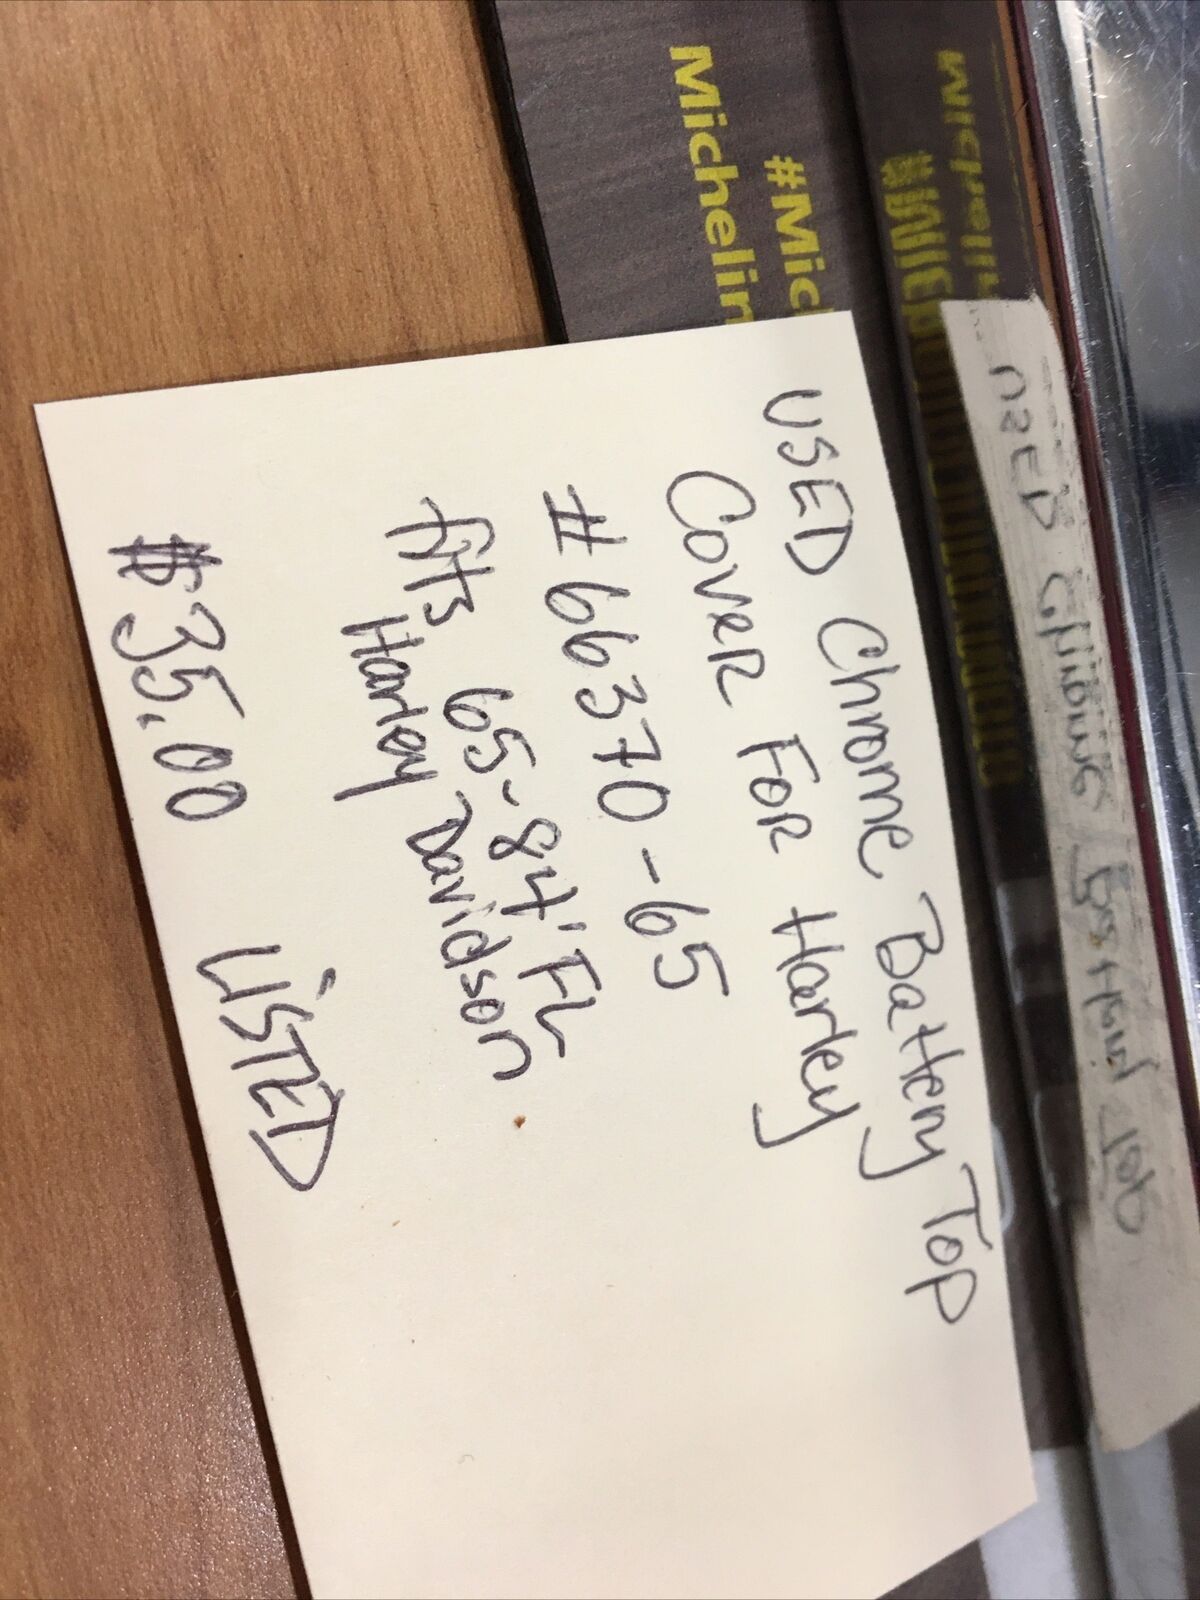 USED Chrome Battery Top
Cover For Harley
#66370-65
fits 65-84' FL
Harley Davidson
$35.00 LISTED
#Mic
Michelin
USED